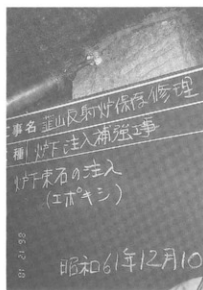 工事名 韮山反射炉保存修理
種 炉下注入補強工事
炉下束石の注入
(エポキシ)
昭和61年12月10
86 12 10